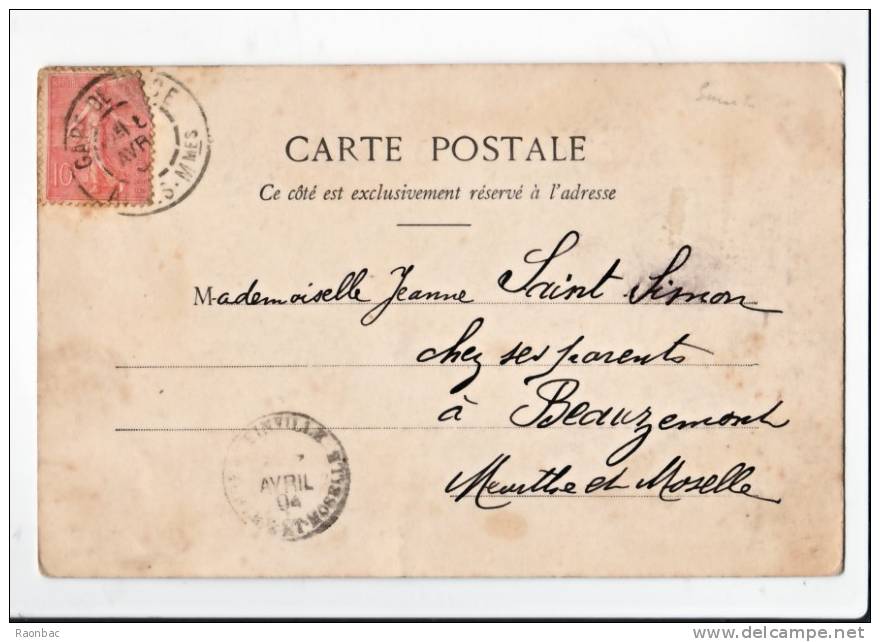 GARE DE NICE
15
AVR
ALPES-MMES
10
CARTE POSTALE
Ce côté est exclusivement réservé à l'adresse
Mademoiselle Jeanne Saint Simon
chez ses parents
à Beauzemont
Meurthe et Moselle
EINVILLE
AVRIL
04
Raonbac
www.delcampe.net